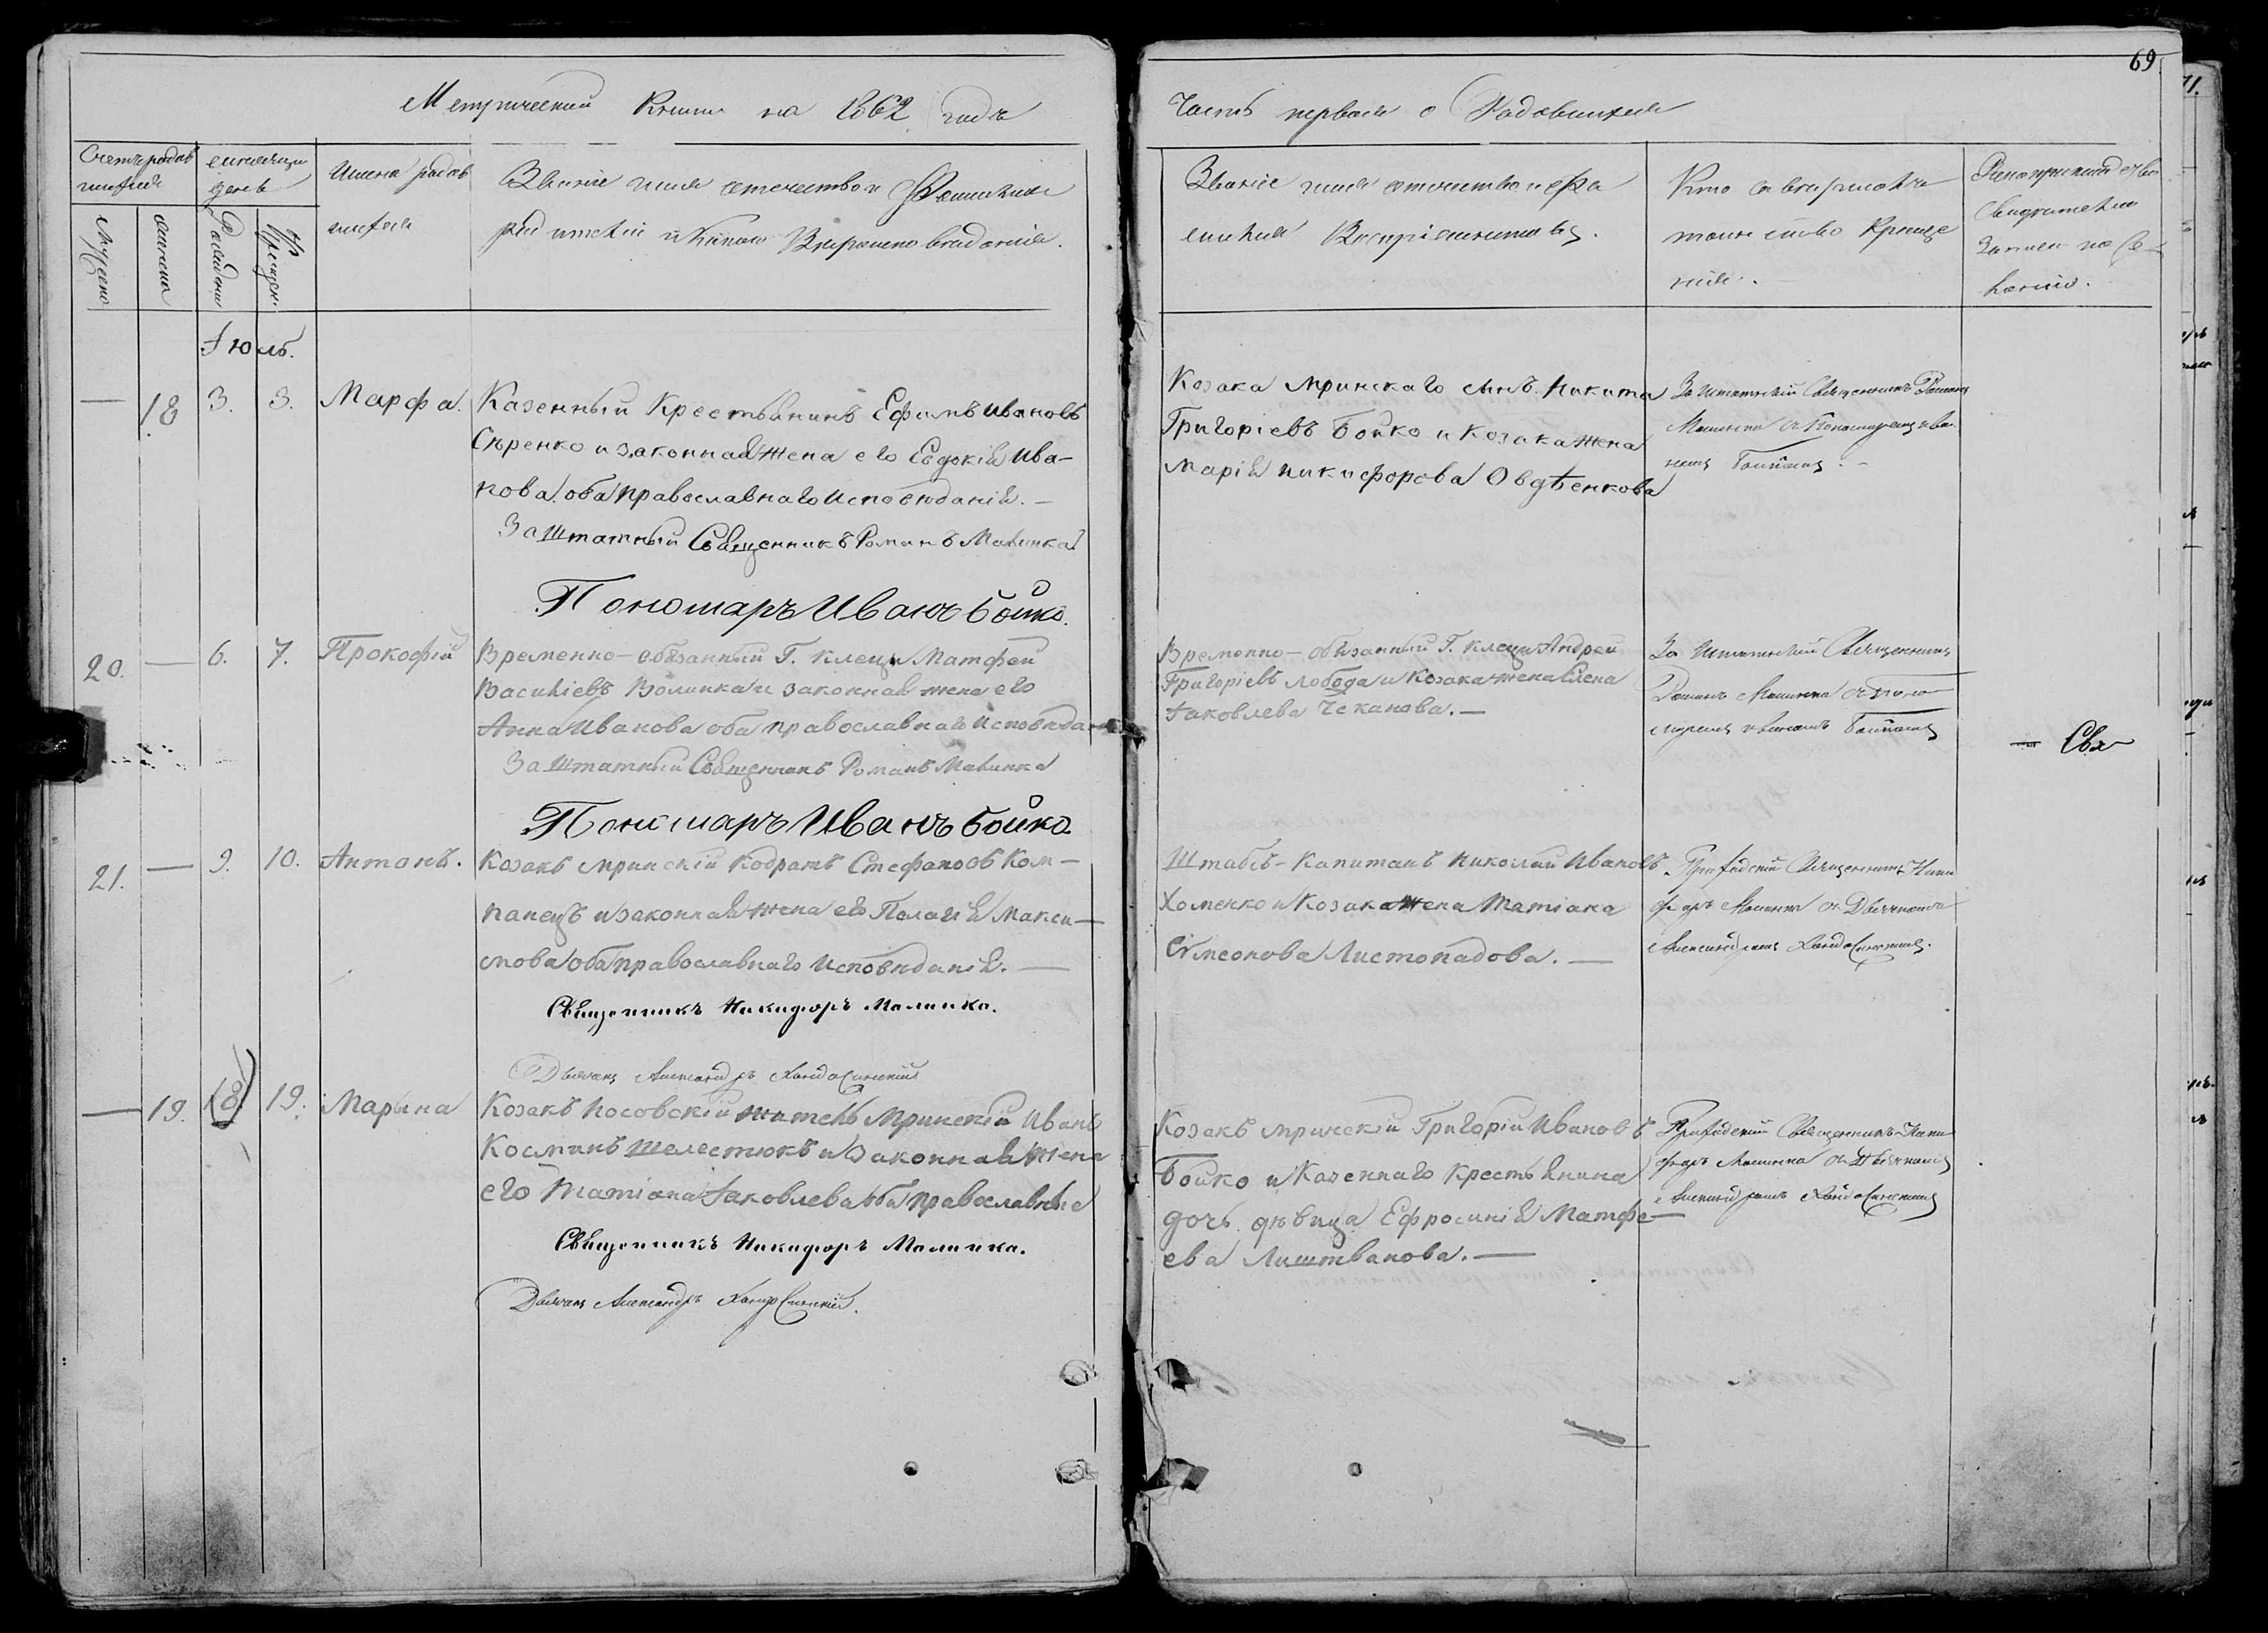 69
Метрической Книги на 1862 годъ
Часть первая о Родившихся
Счетъ родив
шихся
мужеска
женска
месяцъ
день
Рожденія
Крещен.
Имена родив
шихся
Званіе имя отечество и Фамилия
родителей и какого Вѣроисповеданія.
Званіе имя отечество и фа
милия Воспріемниковъ.
Кто совершалъ
таинство Креще
нія.
Рукоприкладство
Свидетелей
записи по Же-
ланію.
Іюль.
— 18 3. 3. Марфа.
Казенный Крестьянинъ Ефимъ Ивановъ
Сѣренко и законная жена его Евдокія Ива-
нова оба православнаго Исповѣданія. —
Заштатный Священникъ Романъ Малинка
Пономаръ Иванъ Бойко.
Козака Мринскаго сынъ Никита
Григоріевъ Бойко и Козака жена
Марія Никифорова Овдѣенкова
Заштатный Священникъ Романъ
Малинка съ Пономаремъ Ива
номъ Бойкомъ. —
20. — 6. 7. Прокофій
Временно-обязанный Г. Клеци Матфей
Василіевъ Волинка и законная жена его
Анна Иванова оба православнаго Исповѣда
Заштатный Священикъ Романъ Малинка
Пономаръ Иванъ Бойко
Временно-обязанный Г. Клеци Андрей
Григоріевъ Лобода и Козака жена Елена
Іаковлева Чеканова. —
Заштатный Священникъ
Романъ Малинка съ Поно
маремъ Иваномъ Бойкомъ
21. — 9. 10. Антонъ.
Козакъ Мринскій Кодратъ Стефановъ Ком-
панецъ и законная жена его Палагія Макси-
мова оба православнаго Исповѣданія. —
Священникъ Никифоръ Малинка.
Дьячокъ Александръ
Штабсъ-Капитанъ Николай Ивановъ
Хоменко и Козака жена Татіана
Сімеонова Листопадова. —
Приходскій Священникъ Ники
форъ Малинка съ Дьячкомъ
Александромъ
— 19. 18. 19. Марина
Козакъ Носовскій житель Мринскій Иванъ
Косминъ Шелестюкъ и законная жена
его Татіана Іаковлева оба православные
Священникъ Никифоръ Малинка.
Дьячокъ Александръ
Козакъ Мринскій Григорій Ивановъ
Бойко и Казеннаго Крестьянина
дочь дѣвица Ефросинія Матфе-
ева Лиштванова. —
Приходскій Священникъ Ники
форъ Малинка съ Дьячкомъ
Александромъ